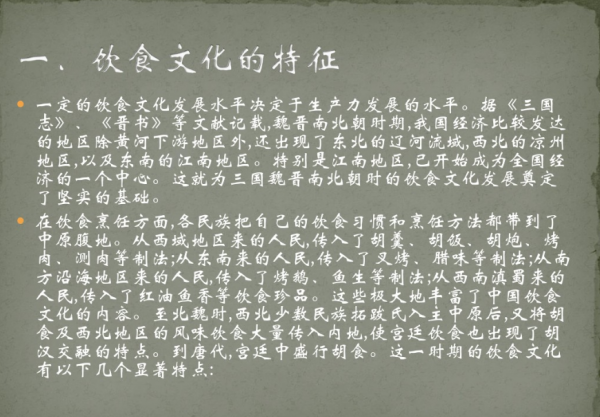 一、饮食文化的特征
一定的饮食文化发展水平决定于生产力发展的水平。据《三国
志》、《晋书》等文献记载,魏晋南北朝时期,我国经济比较发达
的地区除黄河下游地区外,还出现了东北的辽河流域,西北的凉州
地区,以及东南的江南地区。特别是江南地区,已开始成为全国经
济的一个中心。这就为三国魏晋南北朝时的饮食文化发展奠定
了坚实的基础。
在饮食烹饪方面,各民族把自己的饮食习惯和烹饪方法都带到了
中原腹地。从西域地区来的人民,传入了胡羹、胡饭、胡炮、烤
肉、涮肉等制法;从东南来的人民,传入了叉烤、腊味等制法;从南
方沿海地区来的人民,传入了烤鹅、鱼生等制法;从西南滇蜀来的
人民,传入了红油鱼香等饮食珍品。这些极大地丰富了中国饮食
文化的内容。至北魏时,西北少数民族拓跋氏入主中原后,又将胡
食及西北地区的风味饮食大量传入内地,使宫廷饮食也出现了胡
汉交融的特点。到唐代,宫廷中盛行胡食。这一时期的饮食文化
有以下几个显著特点: